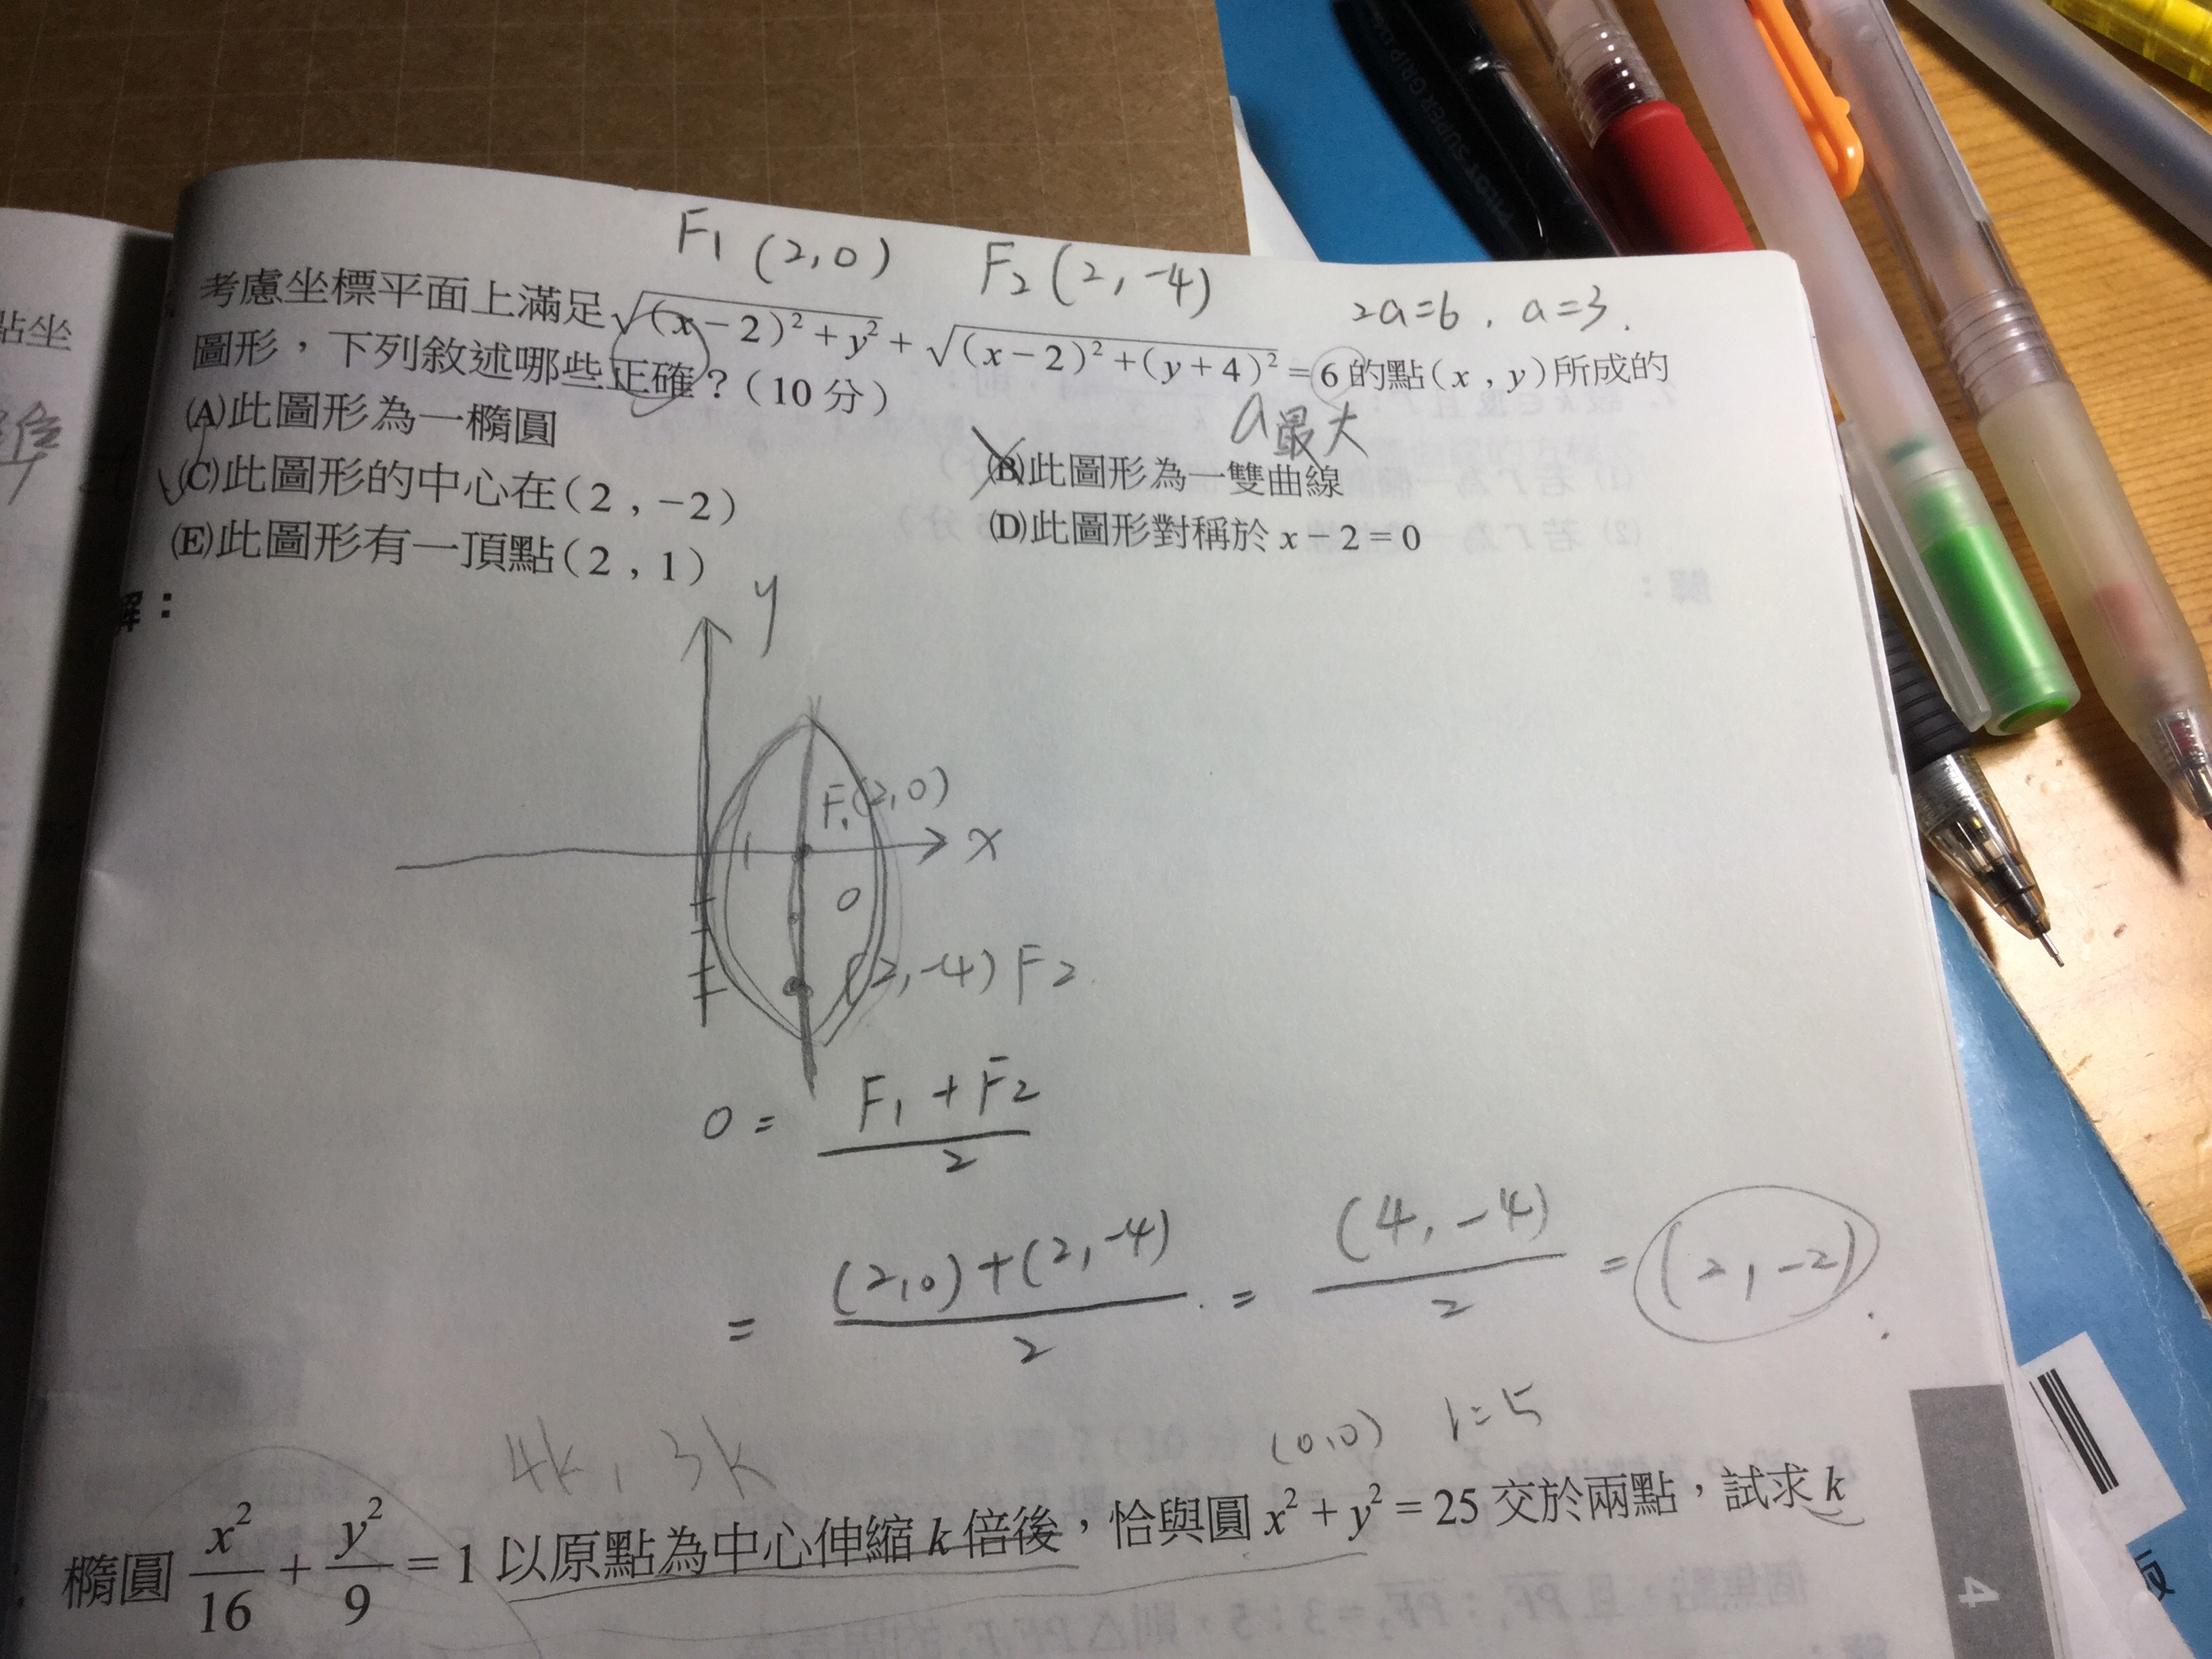 F₁ (2,0) F₂ (2,-4)
2a=6 , a=3 .
點坐
準
考慮坐標平面上滿足 √((x-2)²+y²) + √((x-2)²+(y+4)²) = 6 的點(x , y)所成的
圖形，下列敘述哪些正確？(10 分)
a最大
(A)此圖形為一橢圓
(B)此圖形為一雙曲線
(C)此圖形的中心在(2 , -2)
(D)此圖形對稱於 x-2=0
(E)此圖形有一頂點(2 , 1)
解：
y
F₁(2,0)
x
0
(2,-4) F2
0 = (F₁ + F2)/2
= ((2,0)+(2,-4))/2 = (4,-4)/2 = (2,-2)
4k , 3k
(0,0) r=5
橢圓 x²/16 + y²/9 = 1 以原點為中心伸縮 k 倍後，恰與圓 x²+y²=25 交於兩點，試求 k
4
PILOT SUPER GRIP